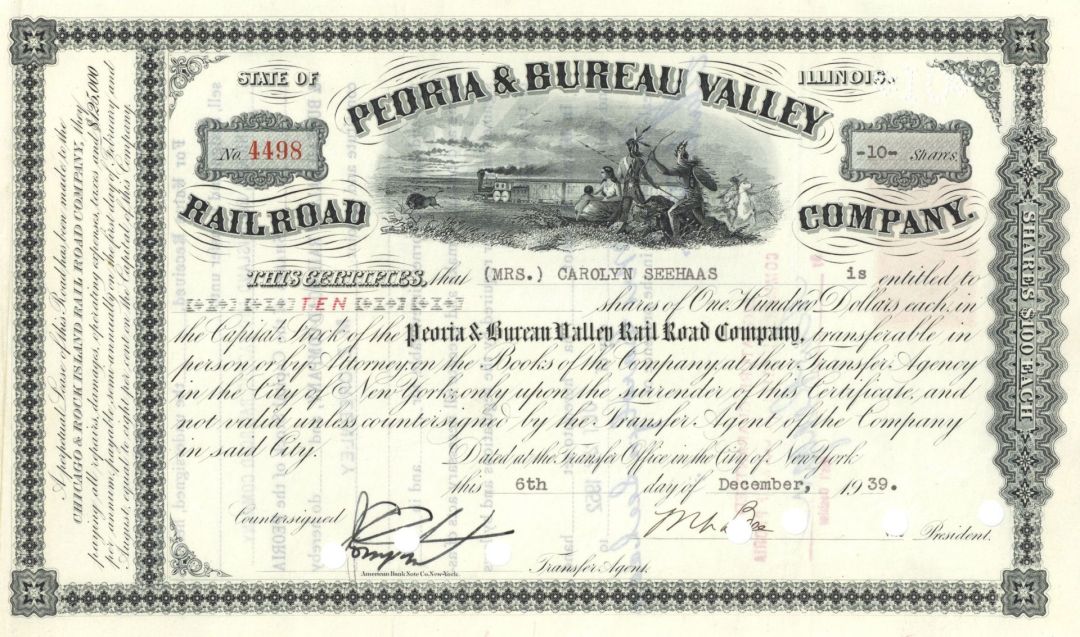 STATE OF
ILLINOIS.
PEORIA & BUREAU VALLEY
No. 4498
-10- Shares.
RAIL ROAD
COMPANY.
THIS CERTIFIES, that (MRS.) CAROLYN SEEHAAS is entitled to
TEN shares of One Hundred Dollars each, in
the Capital Stock of the Peoria & Bureau Valley Rail Road Company, transferable in
person or by Attorney, on the Books of the Company, at their Transfer Agency
in the City of New York, only upon the surrender of this Certificate, and
not valid unless countersigned by the Transfer Agent of the Company
in said City.
Dated at the Transfer Office, in the City of New York
this 6th day of December, 1939.
Countersigned
President.
Transfer Agent.
American Bank Note Co. New-York.
A perpetual Lease of this Road has been made to the
CHICAGO & ROCK ISLAND RAIL ROAD COMPANY, they
paying all repairs, damages, operating expenses, taxes and $125,000
per annum, payable semi-annually on the first day of February and
August, equal to eight per cent on the Capital of this Company.
SHARES $100 EACH